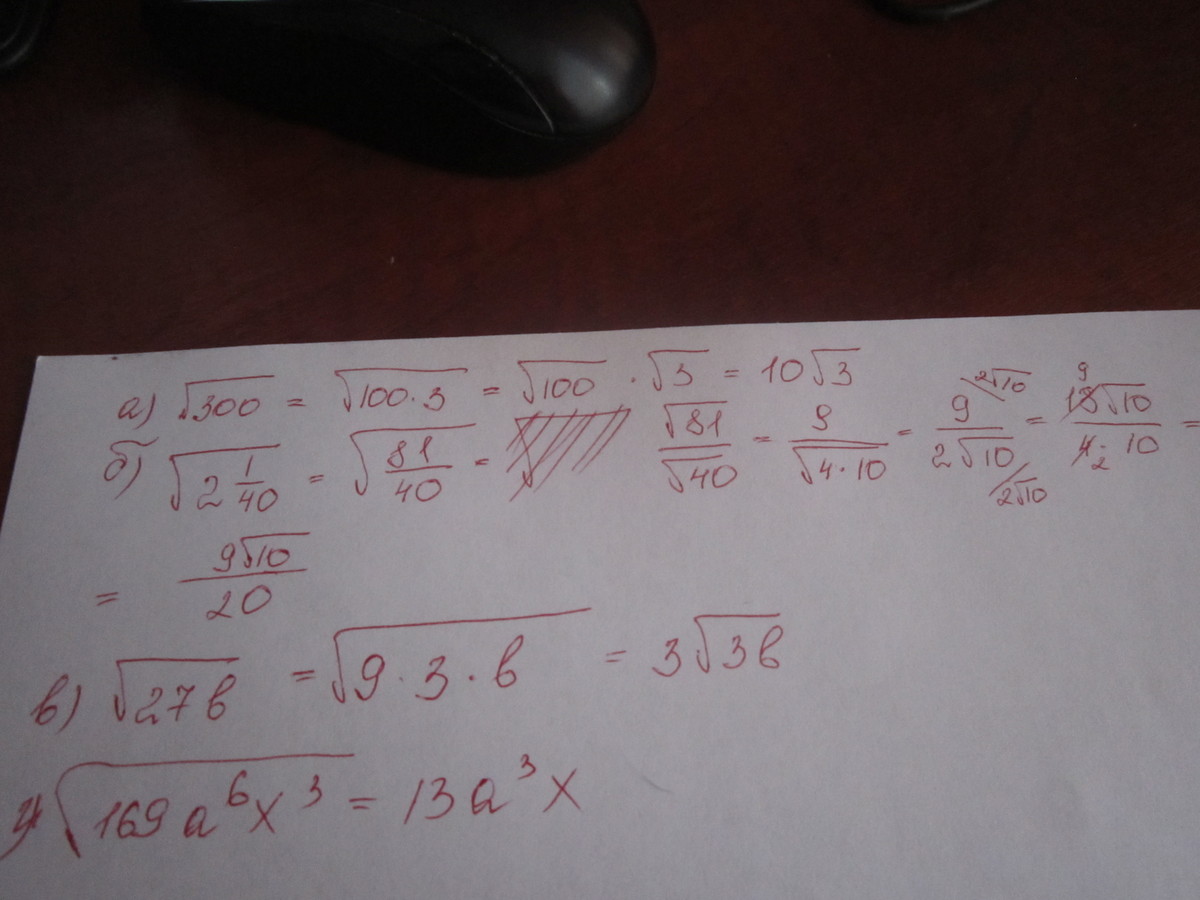 а) √300 = √100·3 = √100 · √3 = 10√3
б) √2 1/40 = √81/40 = √81/√40 = 9/√4·10 = 9/2√10 \2√10 /2√10 = 18√10/4·10 9 2 =
= 9√10/20
в) √27b = √9·3·b = 3√3b
г) √169a⁶x³ = 13a³x